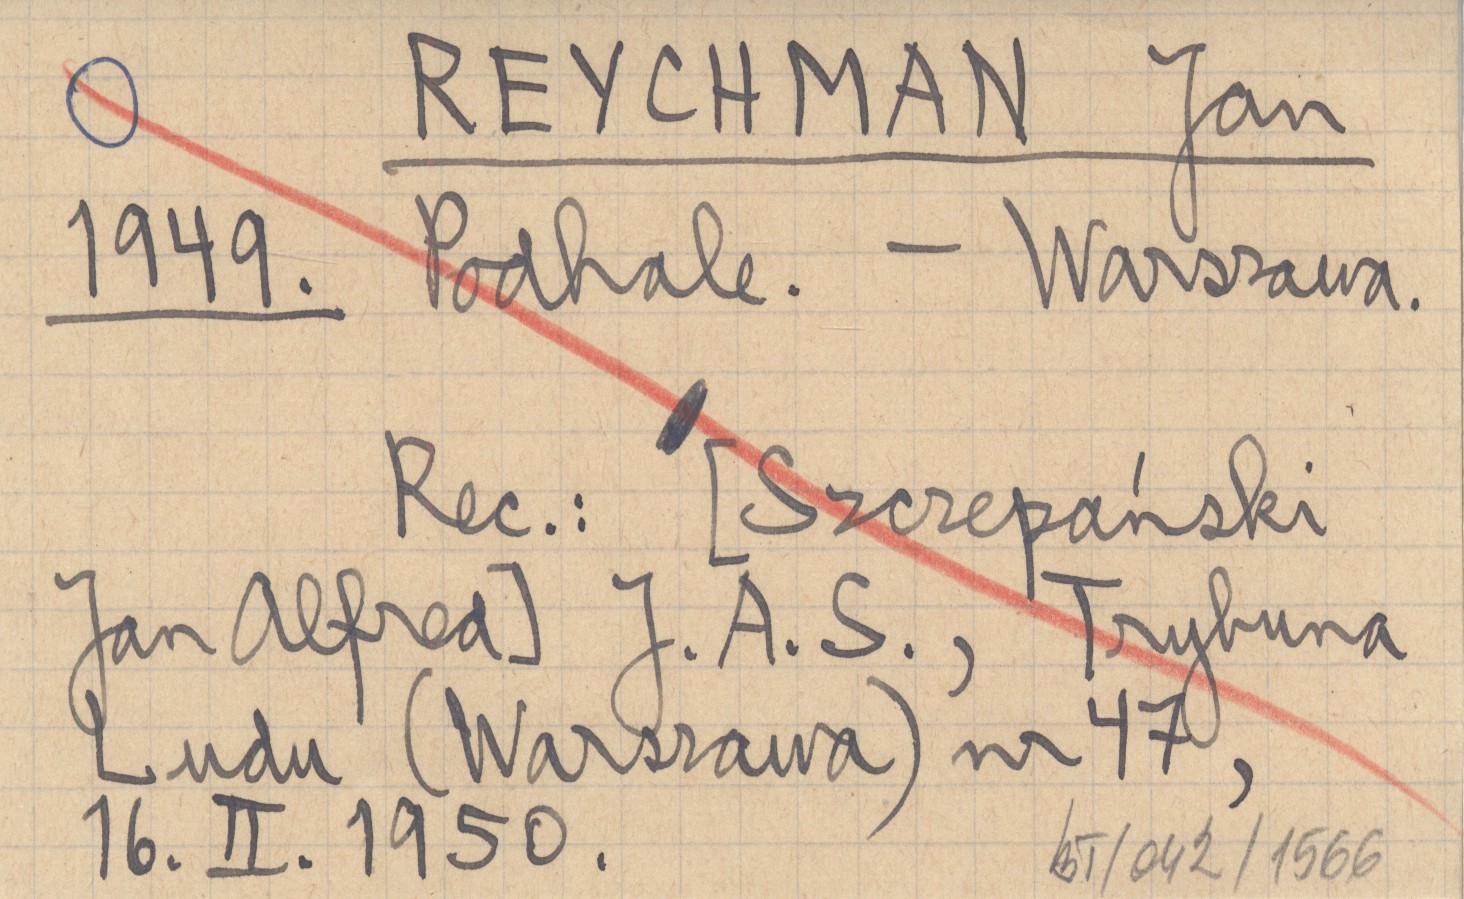 REYCHMAN Jan
1949. Podhale. — Warszawa.
Rec.: [Szczepański
Jan Alfred] J.A.S., Trybuna
Ludu (Warszawa) nr 47,
16. II. 1950.
/042/1566